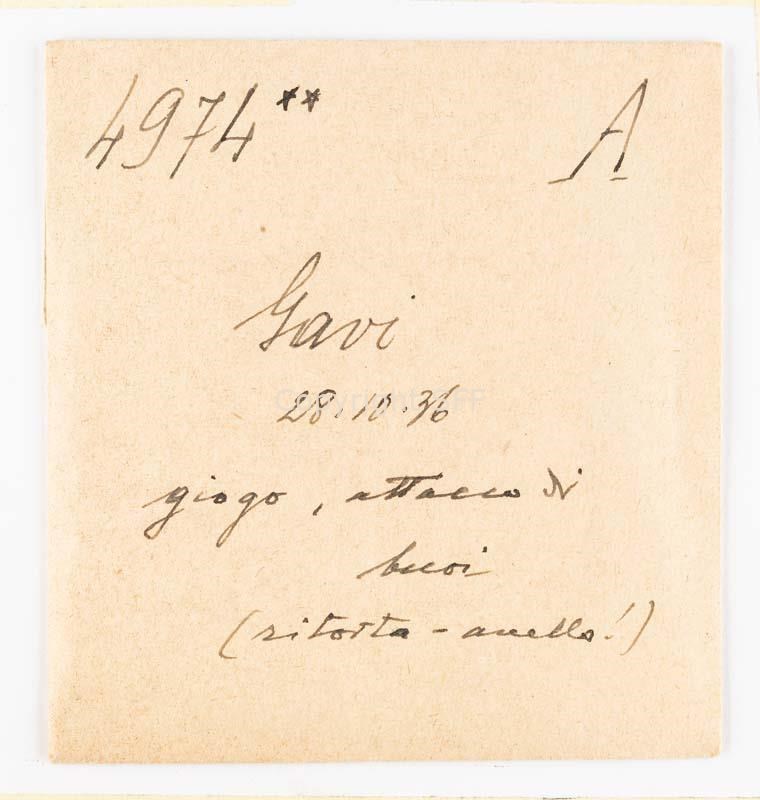 4974** A
Gavi
28.10.36
giogo, attacco di
buoi
(ritorta - anello!)